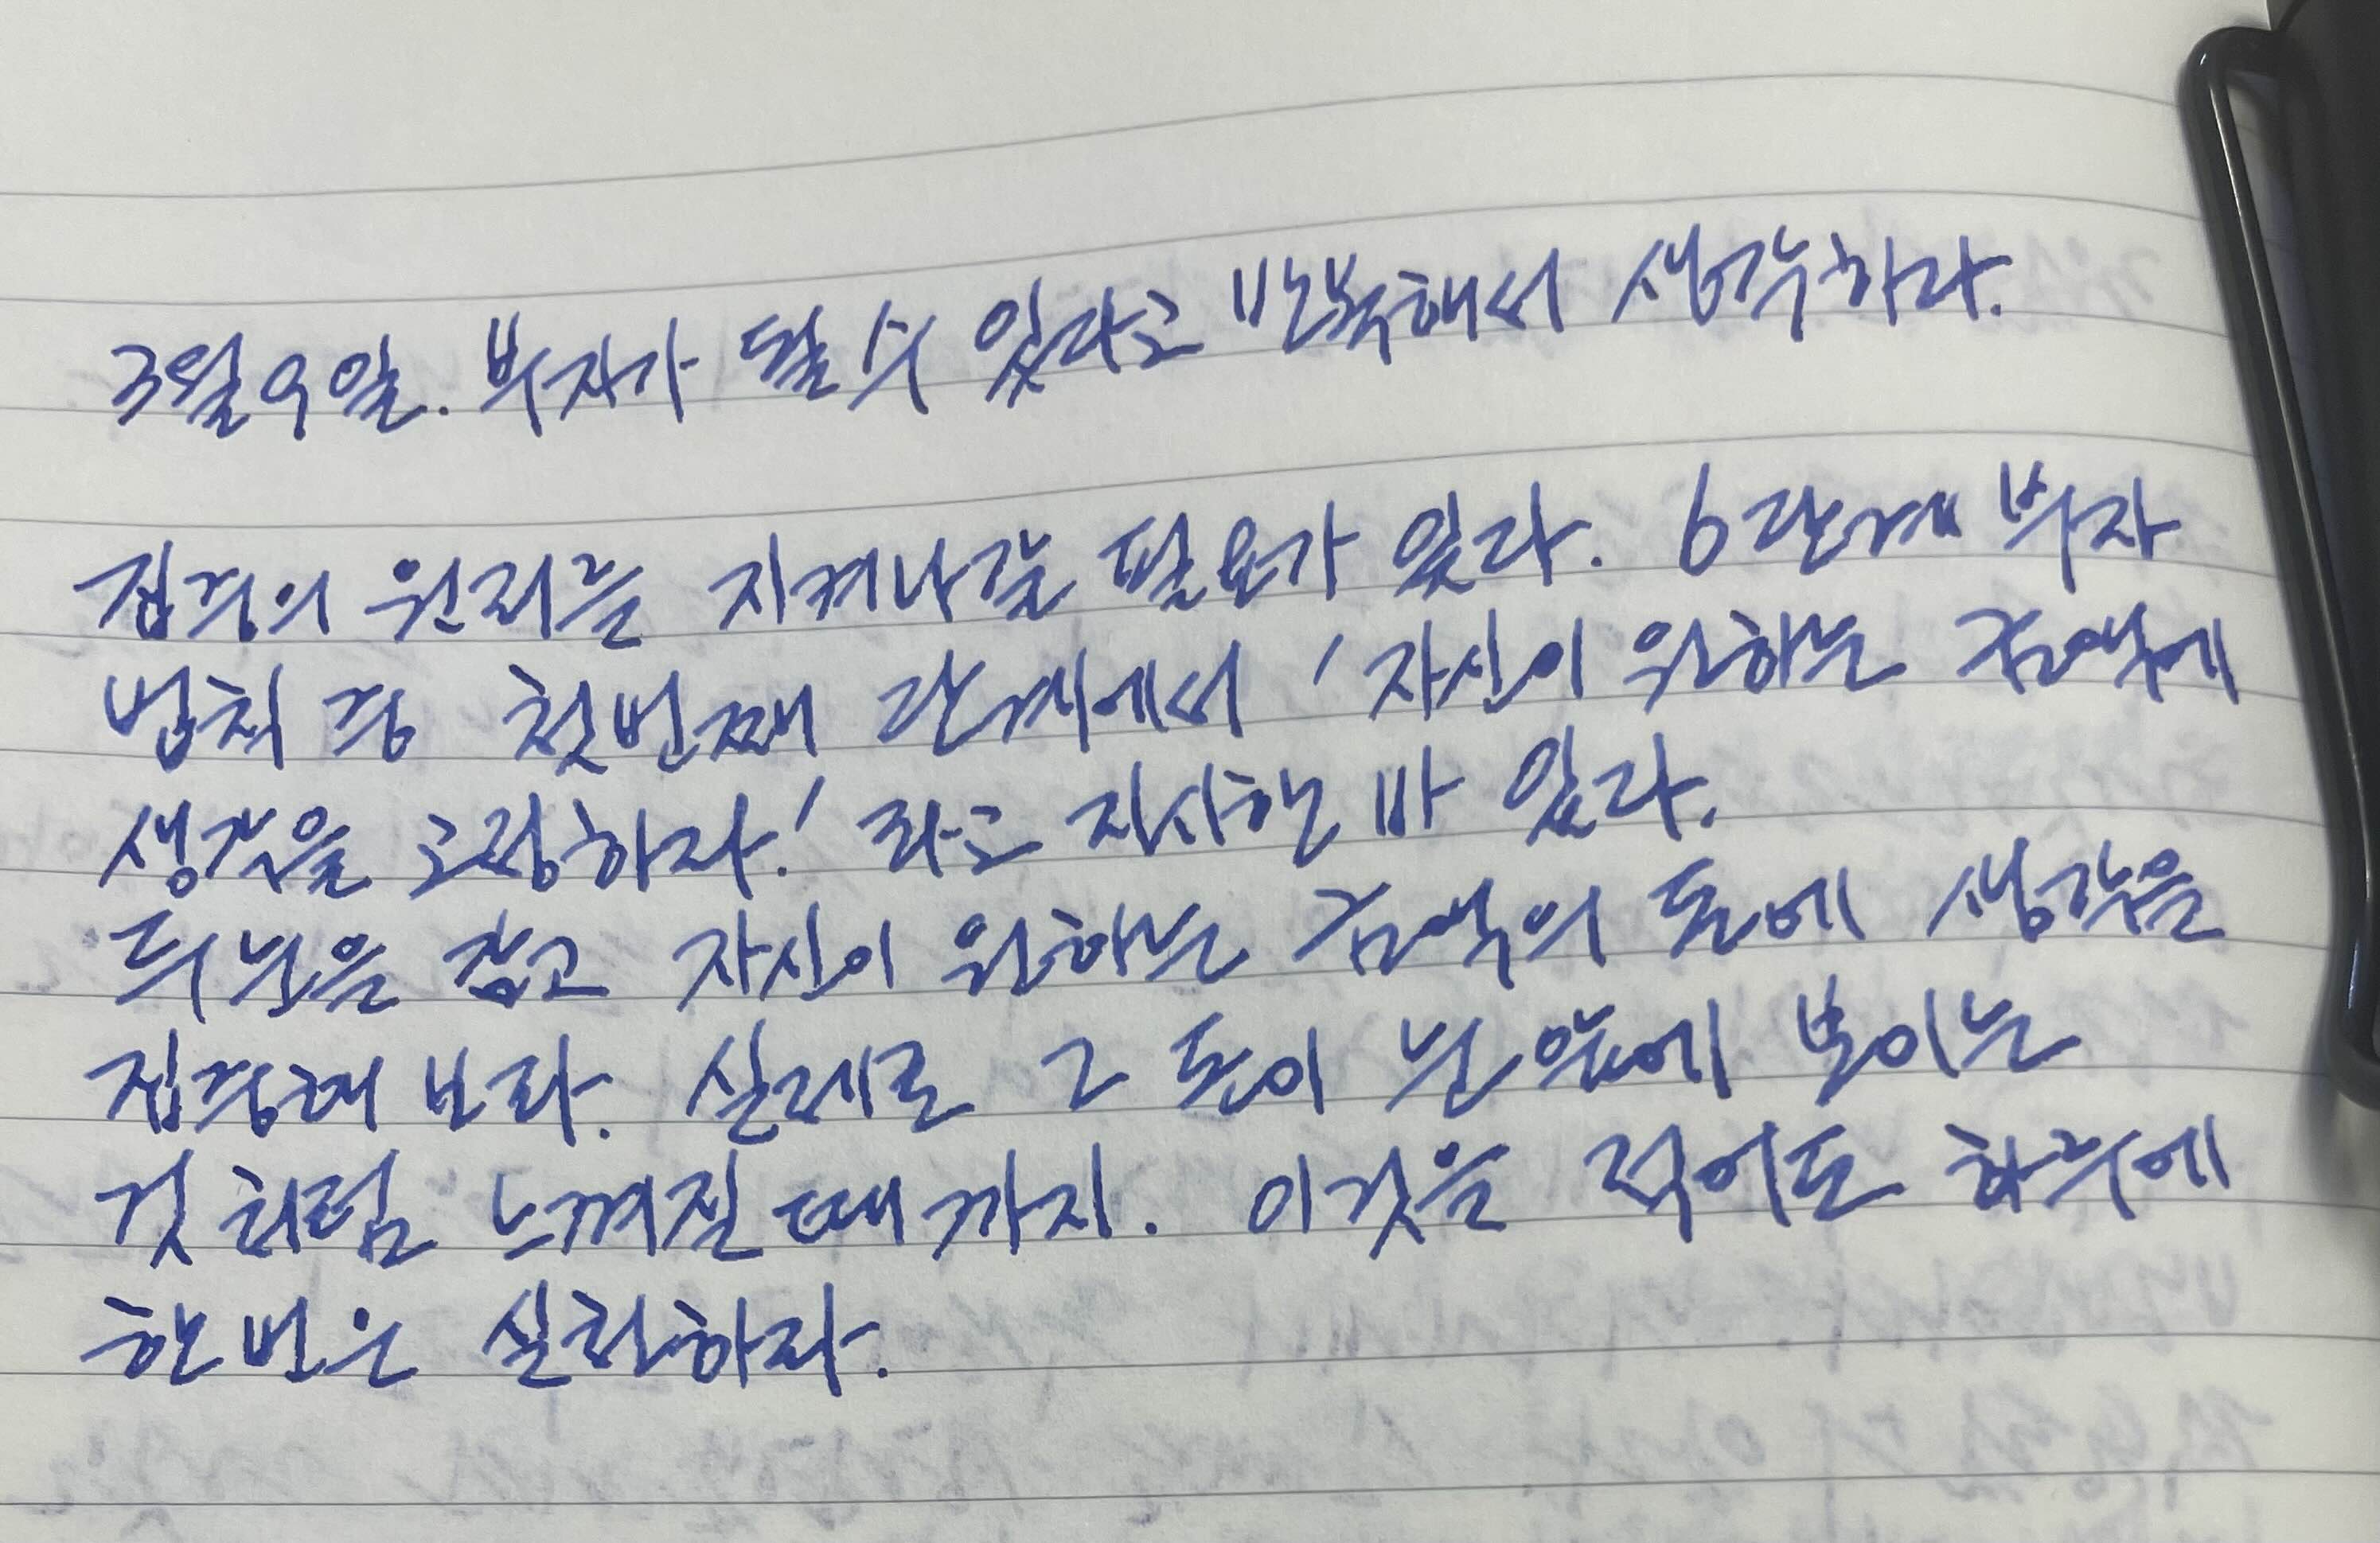 3월 9일. 부자가 될 수 있다고 반복해서 생각하라.
집중의 원리를 지켜나갈 필요가 있다. 6단계 부자
법칙 중 첫번째 단계에서 '자신이 원하는 금액에
생각을 고정하라!' 라고 지시한 바 있다.
두 눈을 감고 자신이 원하는 금액의 돈에 생각을
집중해 보라. 실제로 그 돈이 눈 앞에 보이는
것 처럼 느껴질 때 까지. 이것을 적어도 하루에
한 번은 실천하라.